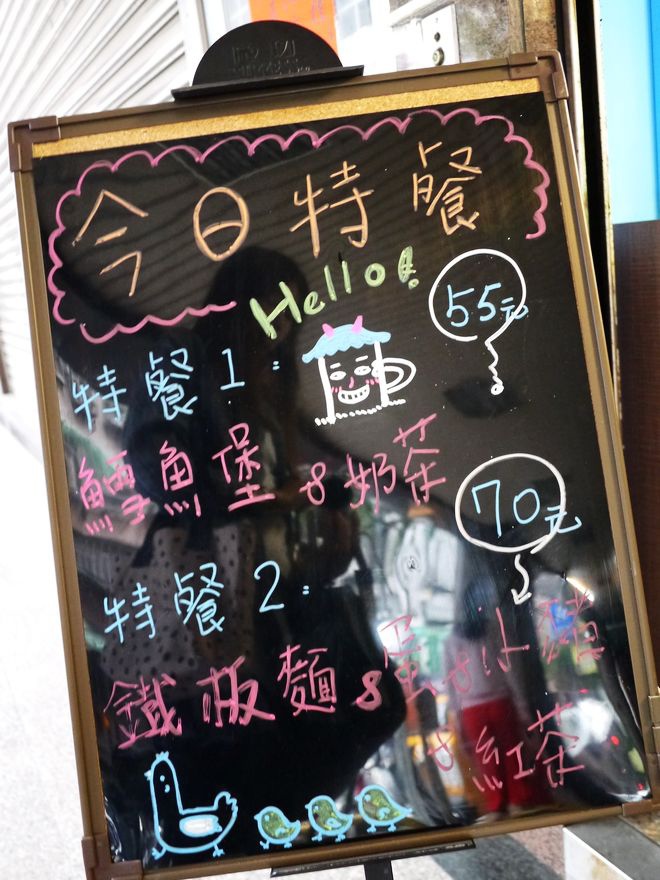 今日特餐
Hello!
55元
特餐1:
鱈魚堡&奶茶
70元
特餐2:
鐵板麵&蛋&小豬
&紅茶